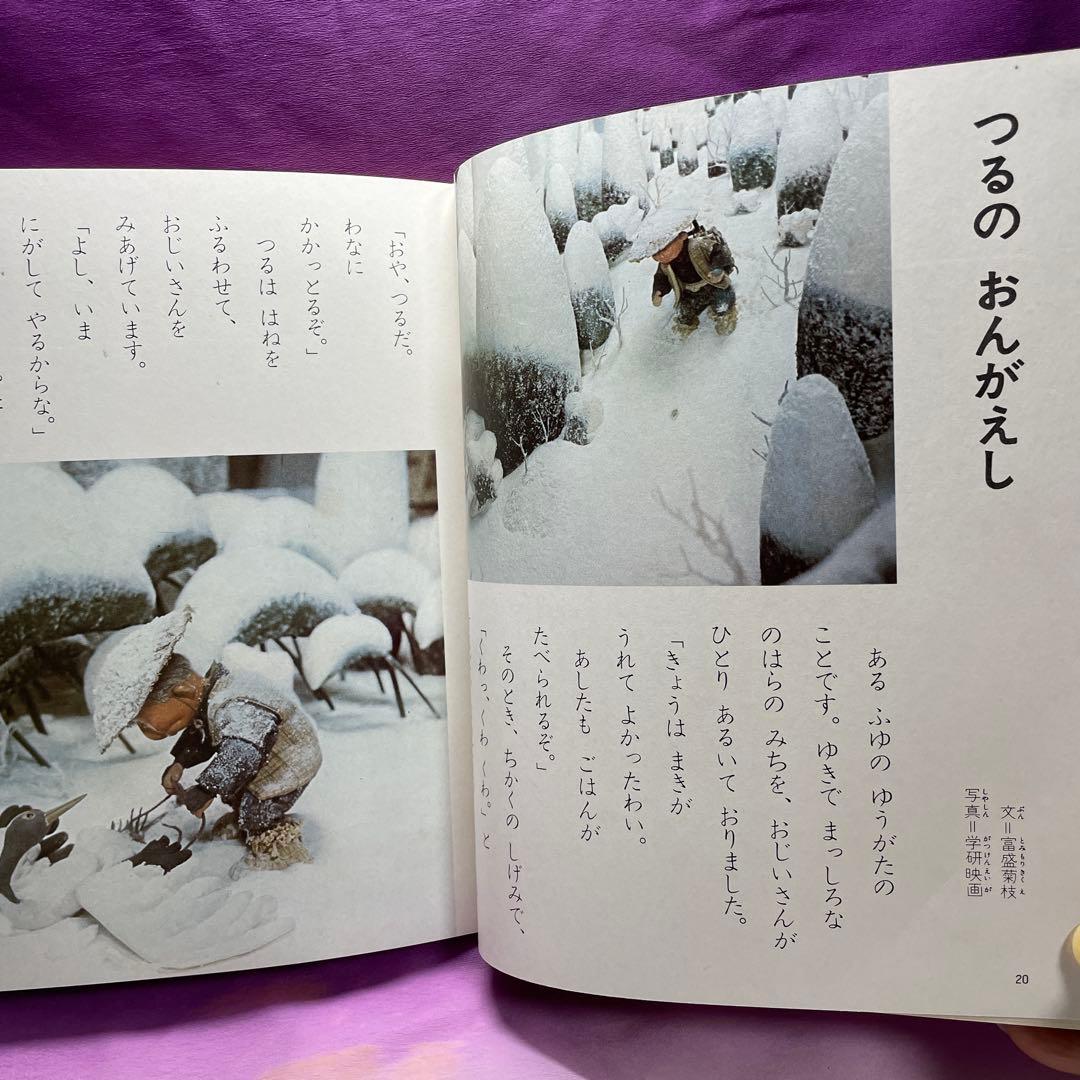 つるの おんがえし
ぶん とみもりきくえ
文＝富盛菊枝
しゃしん がっけんえいが
写真＝学研映画
ある ふゆの ゆうがたの
ことです。ゆきで まっしろな
のはらの みちを、おじいさんが
ひとり あるいて おりました。
「きょうは まきが
うれて よかったわい。
あしたも ごはんが
たべられるぞ。」
そのとき、ちかくの しげみで、
「くわっ、くわ くわ。」と
20
「おや、つるだ。
わなに
かかっとるぞ。」
つるは はねを
ふるわせて、
おじいさんを
みあげています。
「よし、いま
にがして やるからな。」